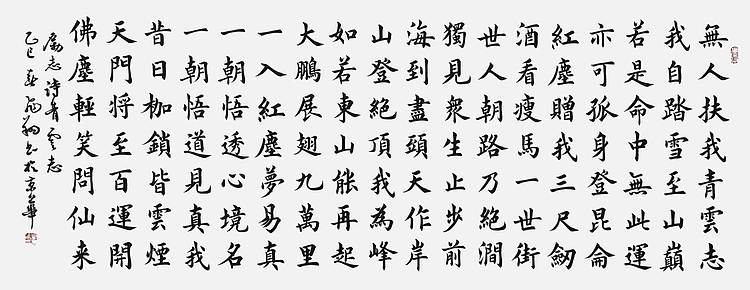 無人扶我青雲志
我自踏雪至山巔
若是命中無此運
亦可孤身登昆侖
紅塵贈我三尺劔
酒看瘦馬一世街
世人朝路乃絕澗
獨見衆生止步前
海到盡頭天作岸
山登絕頂我為峰
如若東山能再起
大鵬展翅九萬里
一入紅塵夢易真
一朝悟透心境名
一朝悟道見真我
昔日枷鎖皆雲煙
天門將至百運開
佛塵輕笑問仙来
勵志詩青雲志
乙巳春雨翔書於京華